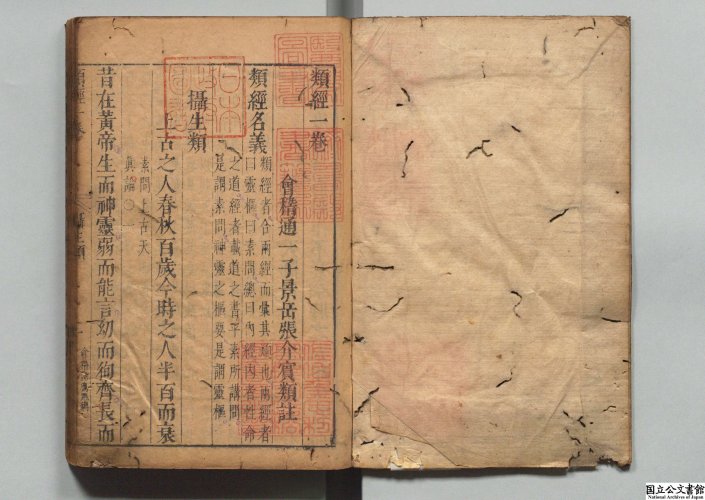 類經一卷
會稽通一子景岳張介賓類註
類經名義
類經者合兩經而彙其類也兩經者
曰靈樞曰素問總曰內經內者性命
之道經者載道之書平素所講問
是謂素問神靈之樞要是謂靈樞
攝生類
上古之人春秋百歲今時之人半百而衰
素問上古天
真論○一
昔在黃帝生而神靈弱而能言幼而徇齊長而
類經一卷
攝生類
一
国立公文書館
National Archives of Japan